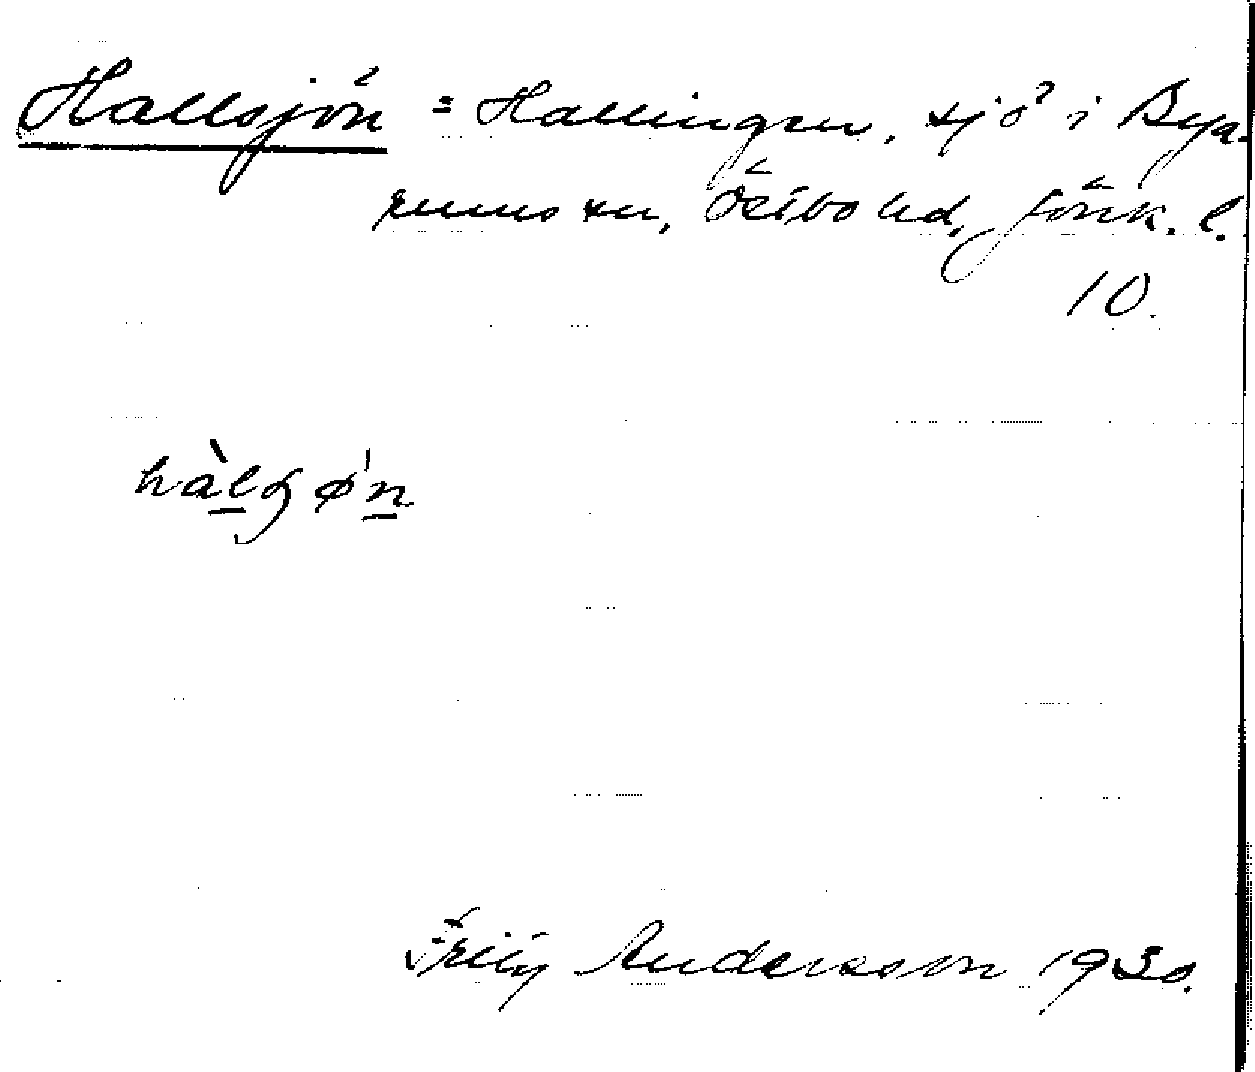 Hallsjön = Hallingen, sjö i Bya-
rums sn, Östbo hd, Jönk. l.
10.
hàlʂø'n
Andersson 1930.